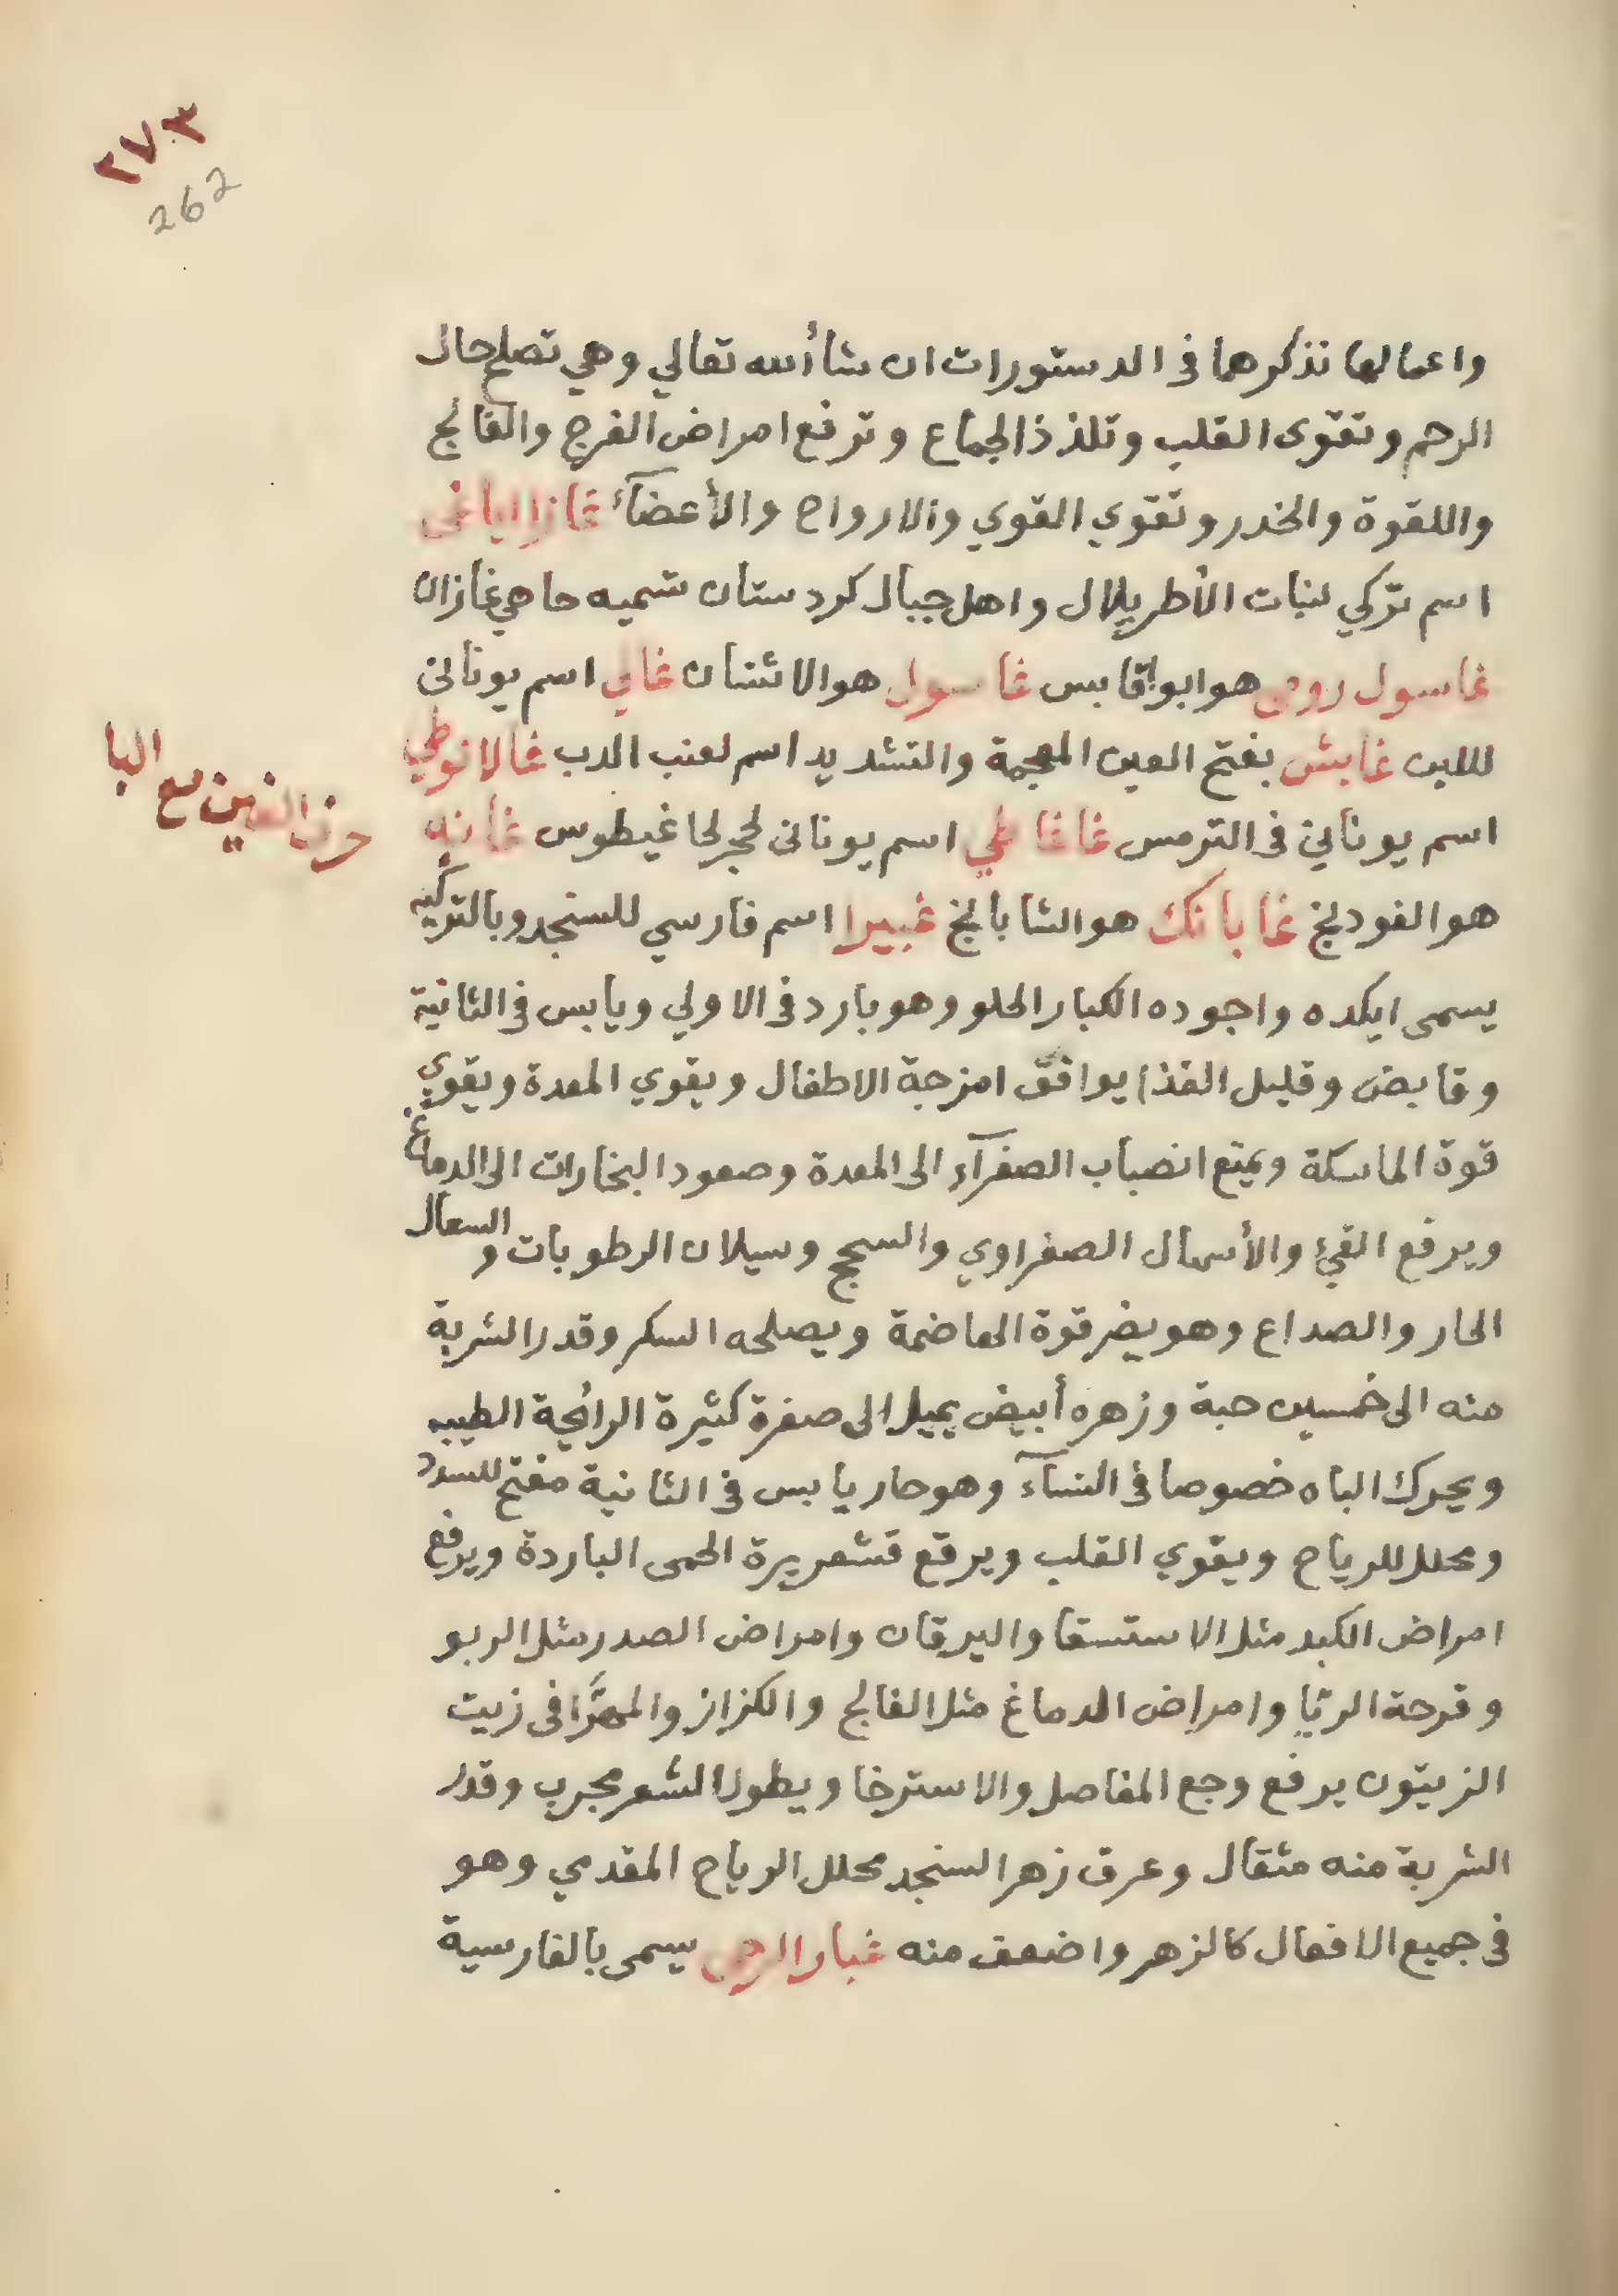 ٢٧٣
262
واعمالها نذكرها فى الدستورات ان شاأالله تعالي وهي تصلح حال
الرحم وتقوى القلب وتلذذ الجماع وترفع امراض الفرج والفالج
واللقوة والخدر وتقوي القوي والارواح والأعضآئ غازاياغى
اسم تركي لنبات الأطريلال واهل جبال كردستان تسميه حاجي غازان
غاسول رومى هو ابوقابس غاسول هو الاشنان غالي اسم يونانى
للبن غابش بفتح الغين المعجمة والتشديد اسم لعنب الدب غالانوطي
حرف الغين مع البا
اسم يونانى فى الترمس غاغاطي اسم يونانى لحجر لحاغيطوس غاينه
هو الفودنج غابانك هو الشابانج غبيرا اسم فارسي للسنجد وبالتركيه
يسمى ايكده واجوده الكبار الحلو وهو بارد فى الاولي ويابس فى الثانية
وقابض وقليل الغذا يوافق امزجة الاطفال ويقوي المعدة ويقوي
قوة الماسكة ويمنع انصباب الصفرآء الى المعدة وصعود البخارات الى الدماغ
ويرفع القئ والأسهال الصفراوي والسحج وسيلان الرطوبات والسعال
الحار والصداع وهو يضر قوة الهاضمة ويصلحه السكر وقدر الشربة
منه الى خمسين حبة وزهره أبيض يميل الى صفرة كثيرة الرائحة الطيبه
ويحرك الباه خصوصا فى النسآء وهو حار يابس فى الثانية مفتح للسدد
ومحلل للرياح ويقوي القلب ويرفع قشعريرة الحمى الباردة ويرفع
امراض الكبد مثل الاستسقا واليرقان وامراض الصدر مثل الربو
وقرحة الريا وامراض الدماغ مثل الفالج والكزاز والمهرّا فى زيت
الزيتون يرفع وجع المفاصل والاسترخا ويطول الشعر مجرب وقدر
الشربة منه مثقال وعرق زهر السنجد محلل الرياح المقدمي وهو
فى جميع الافعال كالزهر واضعف منه غبار الرحى يسمى بالفارسية